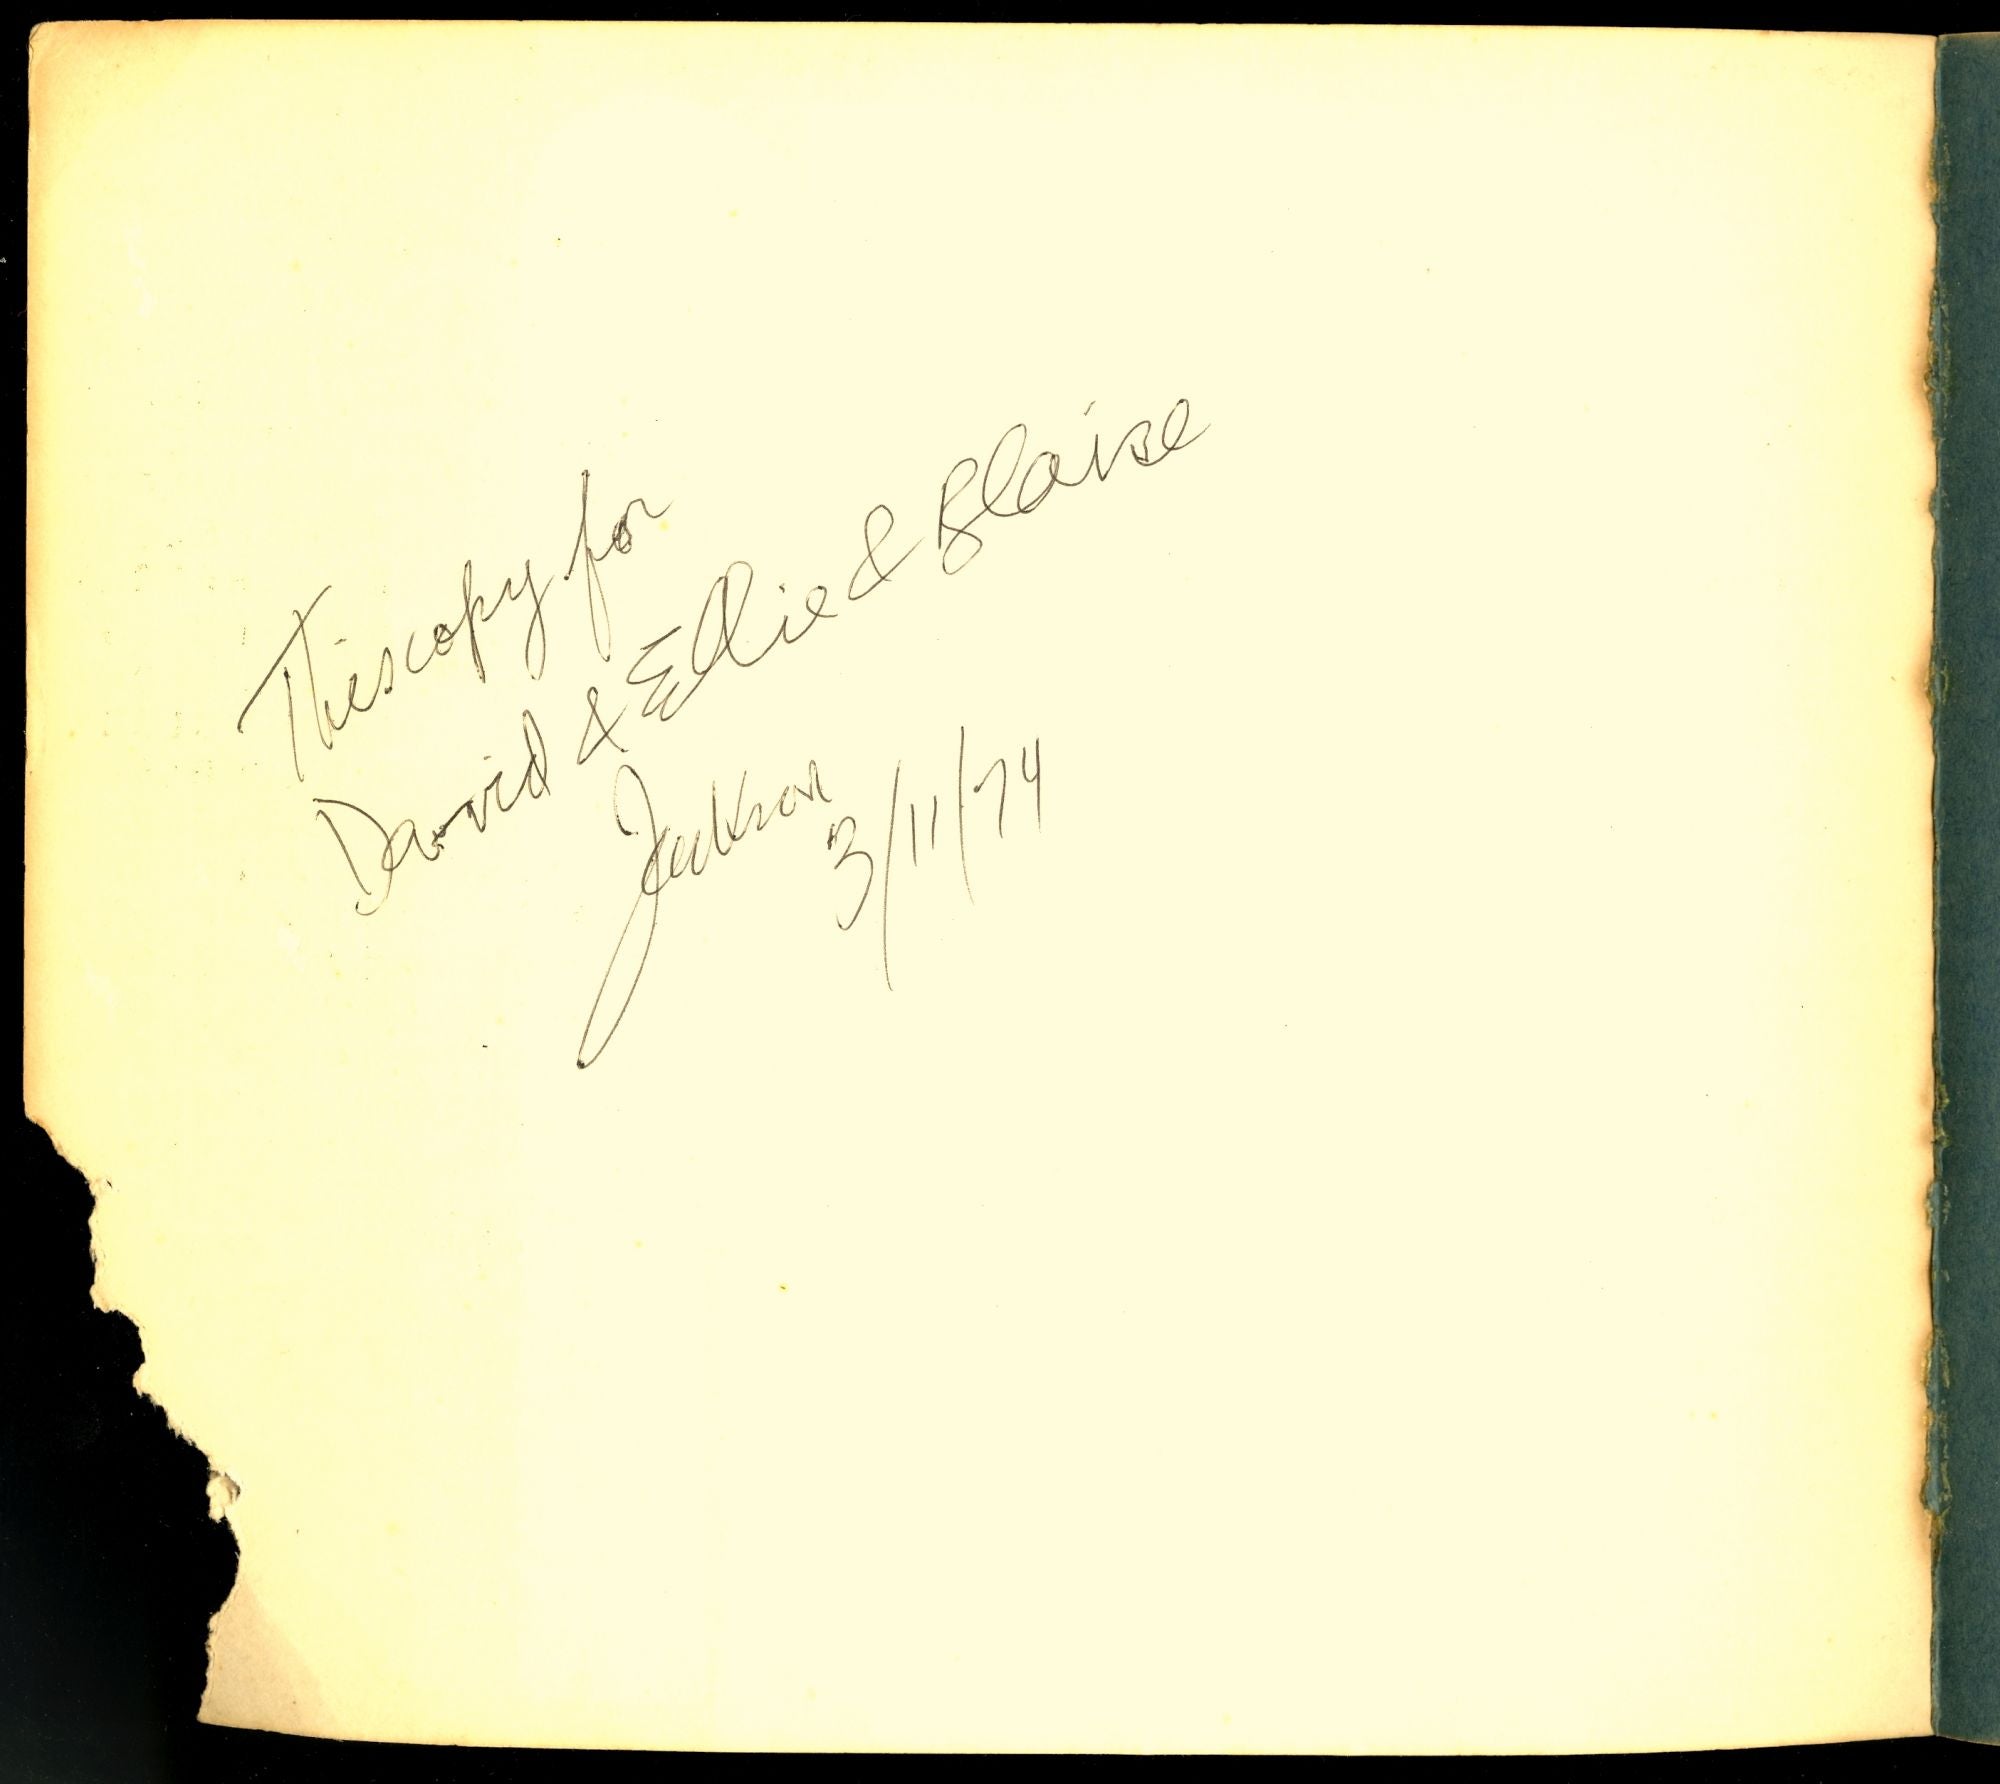 This copy for
David & Ellie & Blaise
Jackson 3/11/74